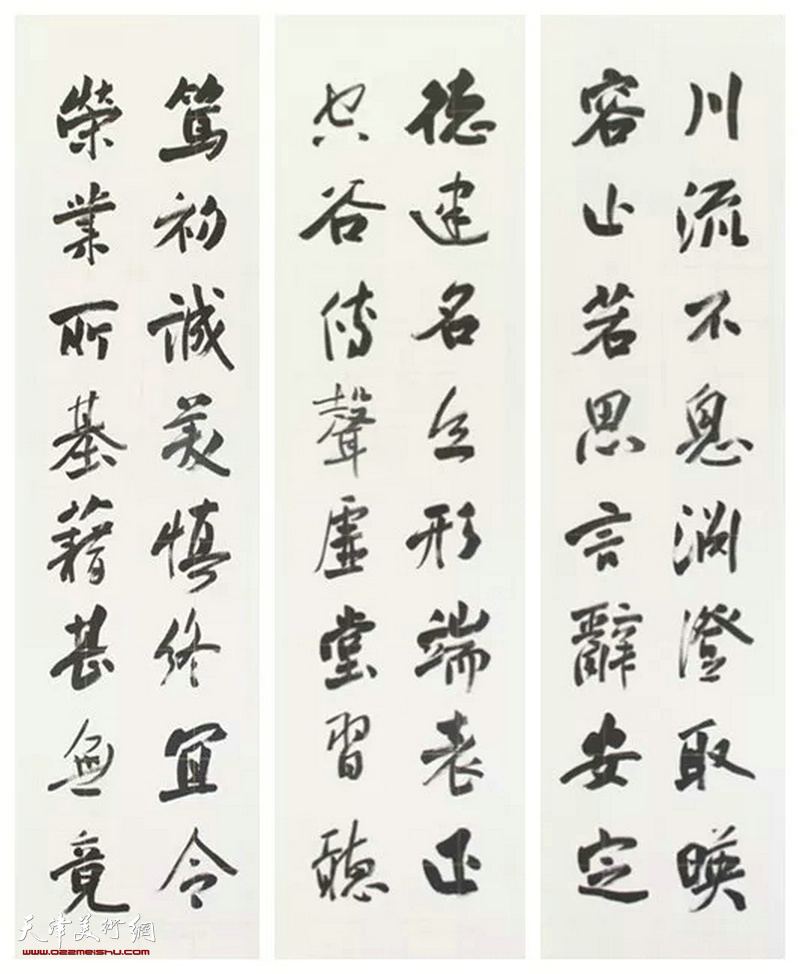 川流不息渊澄取暎
容止若思言辭安定
德建名立形端表正
空谷傳聲虛堂習聽
篤初誠美慎終宜令
榮業所基籍甚無竟
天津美術網
www.022meishu.com